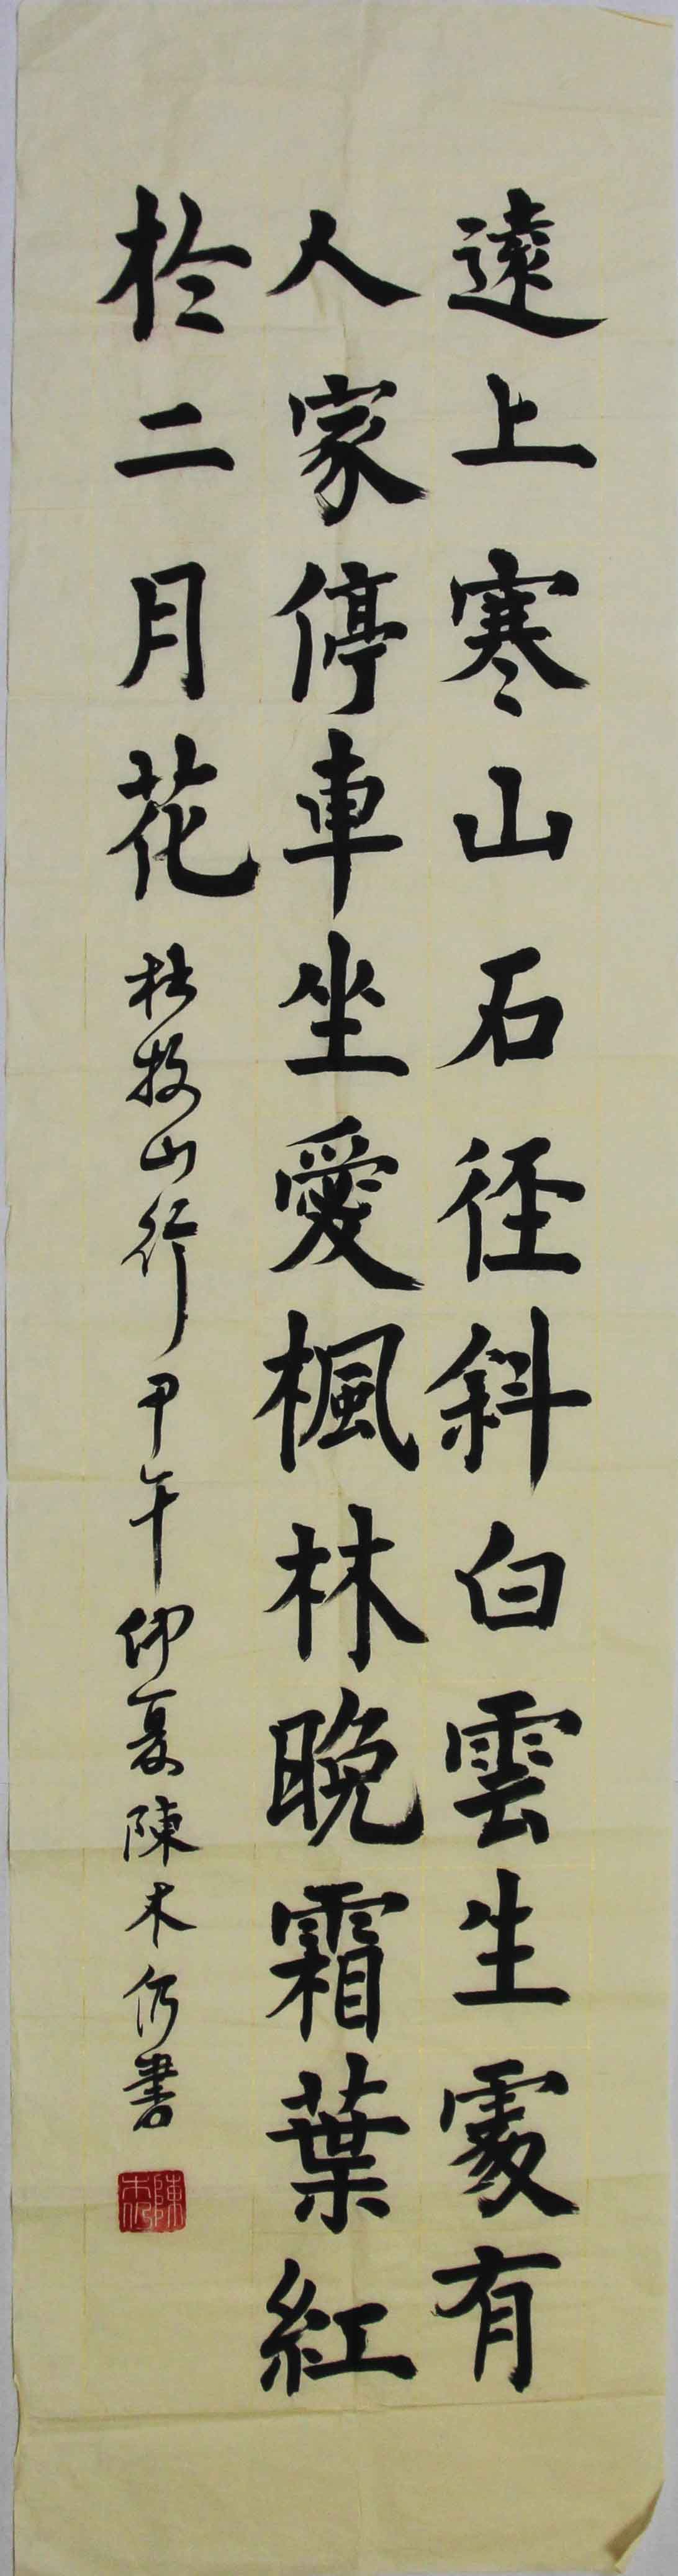 遠上寒山石径斜白雲生處有
人家停車坐愛楓林晚霜葉紅
於二月花 杜牧山行 甲午仲夏 陳木仍書